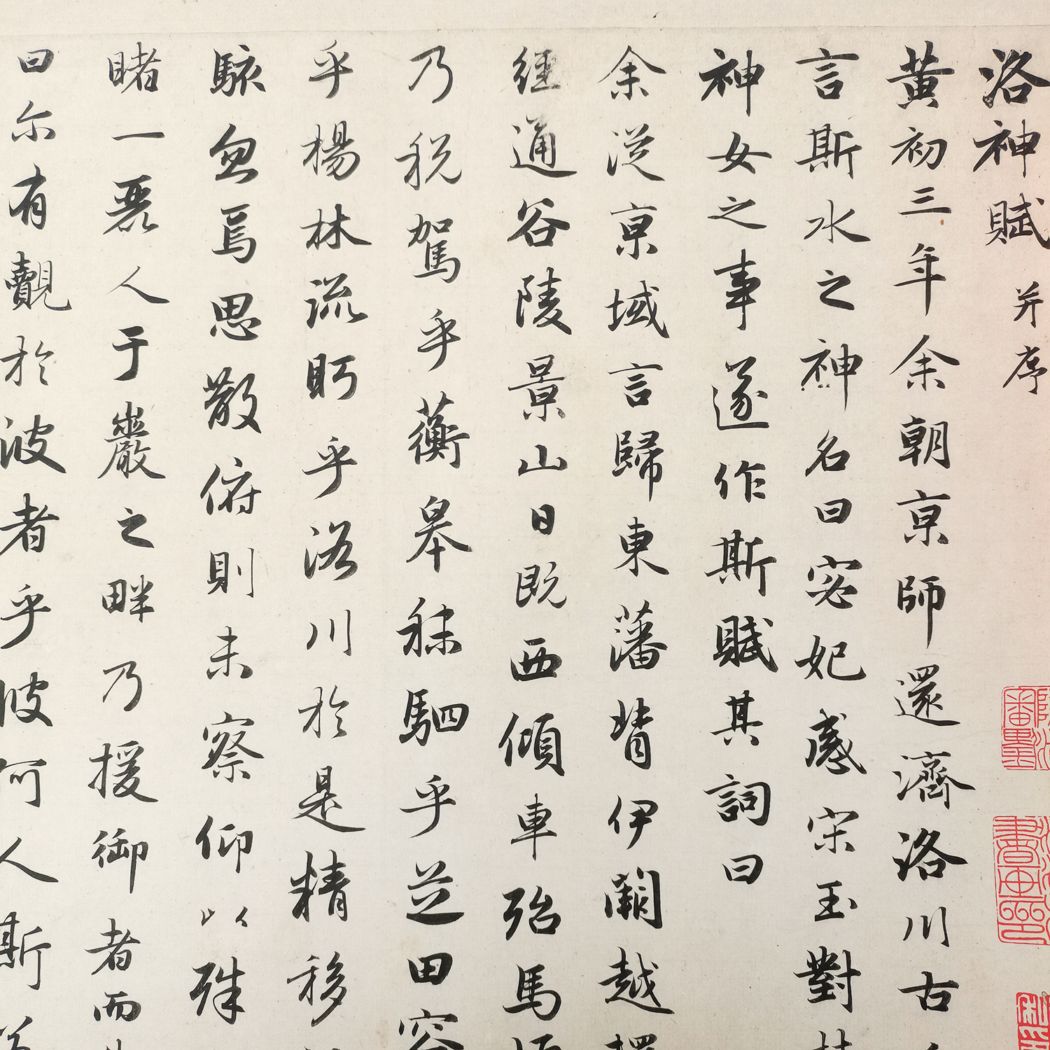 洛神賦 并序
黃初三年余朝京師還濟洛川古
言斯水之神名曰宓妃感宋玉對
神女之事遂作斯賦其詞曰
余從京域言歸東藩背伊闕越
經通谷陵景山日既西傾車殆馬
乃稅駕乎蘅皋秣駟乎芝田容
乎楊林流眄乎洛川於是精移
駭忽焉思散俯則未察仰以殊
睹一麗人于巖之畔乃援御者而
曰尔有覿於彼者乎彼何人斯